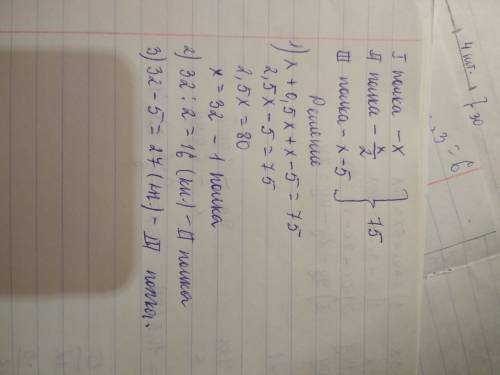 4 шт. } 30
3 = 6
I полка - x
II полка - x/2 } 75
III полка - x-5
Решение
1) x + 0,5x + x - 5 = 75
2,5x - 5 = 75
2,5x = 80
x = 32 - 1 полка
2) 32 : 2 = 16 (кн.) - II полка
3) 32 - 5 = 27 (кн.) - III полка.